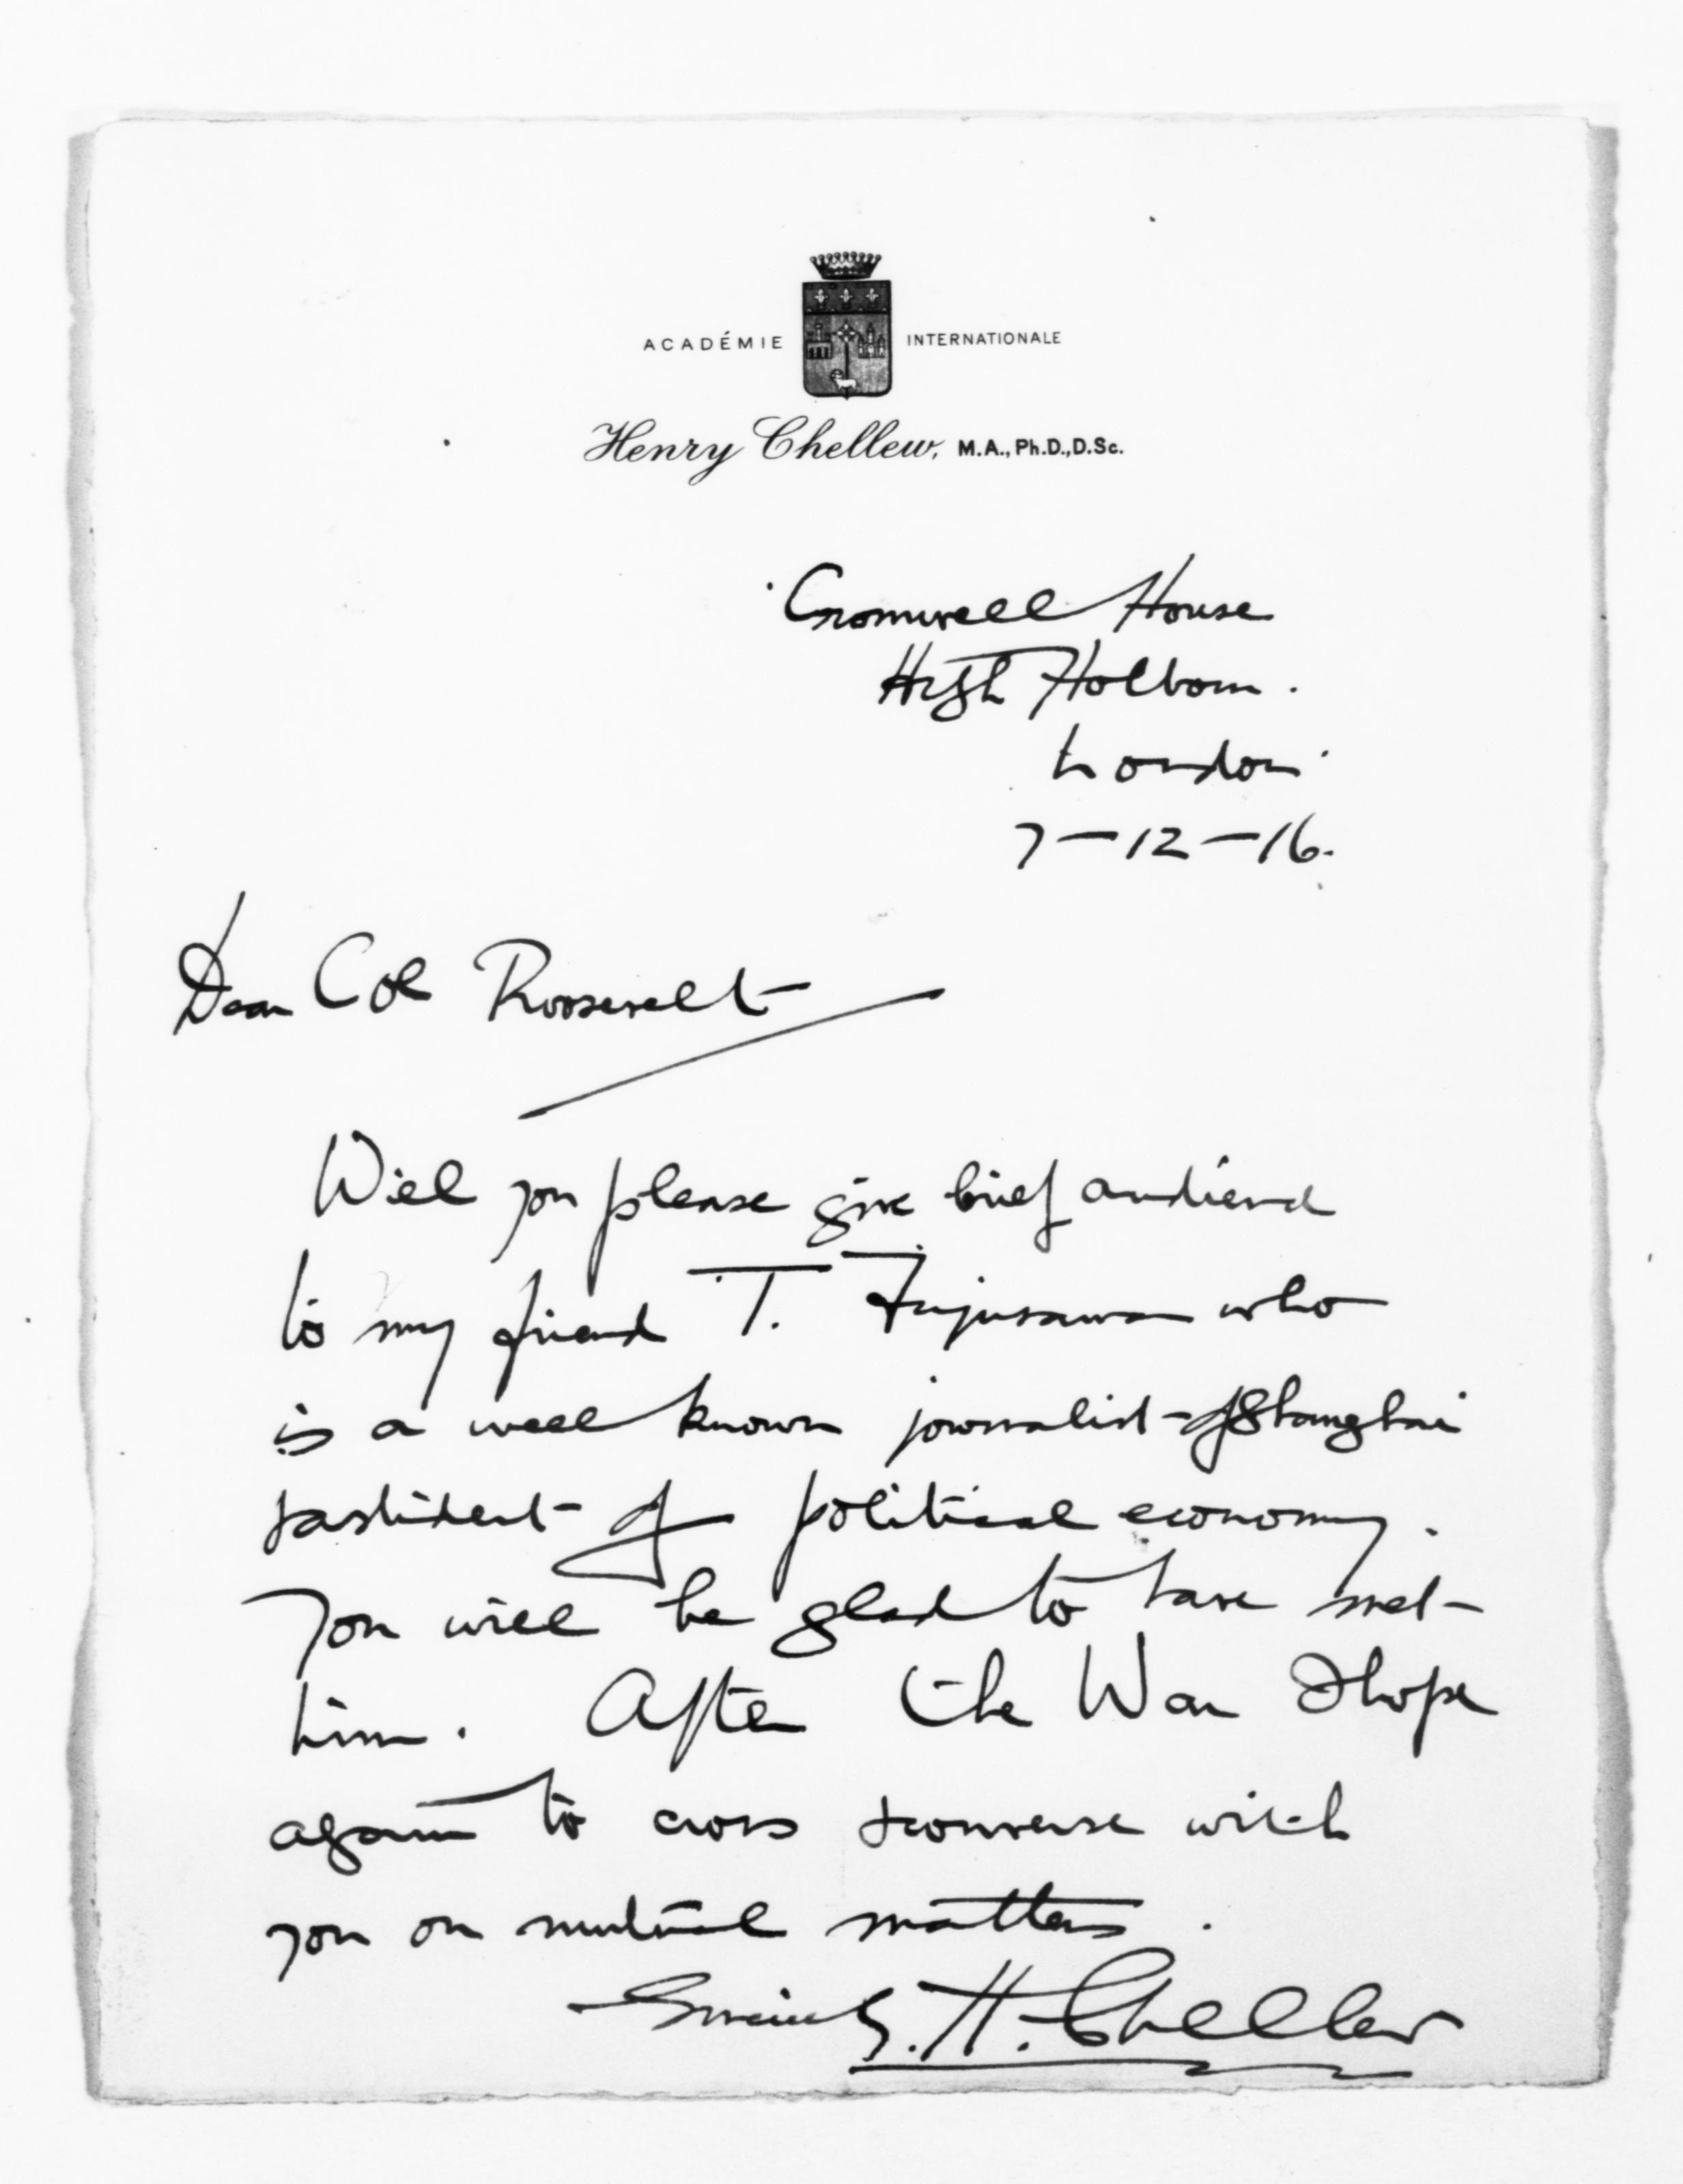 ACADÉMIE INTERNATIONALE
Henry Chellew, M.A., Ph.D., D.Sc.
Cromwell House
High Holborn.
London.
7-12-16.
Dear Col Roosevelt
Will you please give brief audience
to my friend T. Fujisawa who
is a well known journalist of Shanghai
& a student of political economy.
You will be glad to have met
him. After the War I hope
again to cross & converse with
you on mutual matters.
Sincerely. H. Chellew